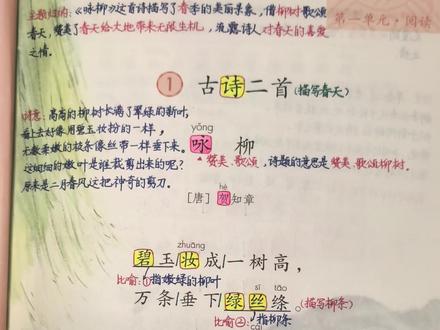 主题归纳:《咏柳》这首诗描写了春季的美丽景象,借柳树歌颂
春天,赞美了春天给大地带来无限生机,流露诗人对春天的喜爱
之情。
第二单元·阅读
① 古诗二首(描写春天)
诗意:高高的柳树长满了翠绿的新叶,
看上去好像用碧玉妆扮的一样,
无数柔嫩的枝条像丝带一样垂下来。
这细细的嫩叶是谁裁剪出来的呢?
原来是二月春风这把神奇的剪刀。
yǒng
咏 柳
赞美、歌颂,诗题的意思是赞美、歌颂柳树。
hè
[唐] 贺知章
zhuāng
碧玉/妆成/一树高,
比喻:①指嫩绿的柳叶
sī tāo
万条/垂下/绿丝绦。(描写柳条)
比喻②:指柳条
cái